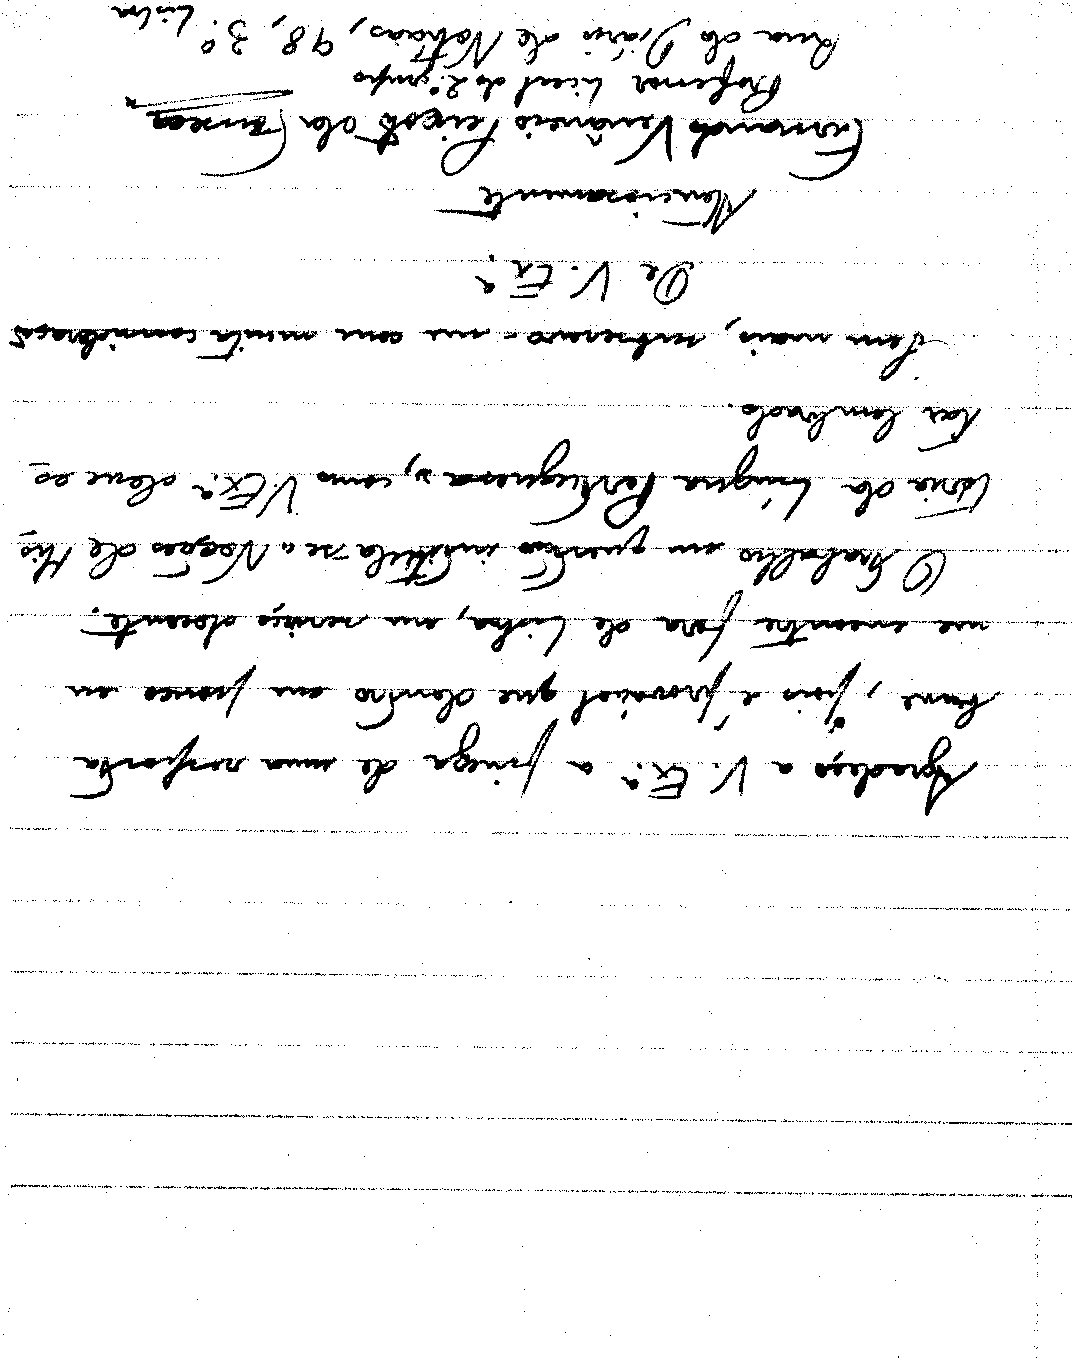 Agradeço a V. Ex.ª a fineza de uma resposta
breve, pois é provável que dentro em pouco eu
me encontre fora de Lisboa, em serviço docente.
O trabalho em questão intitula-se «Noções de His-
tória da Língua Portuguesa», como V. Ex.ª deve es-
tar lembrado.
Sem mais, subscrevo-me com muita consideração
De V. Ex.ª
Atenciosamente
Fernando Venâncio Peixoto da Fonseca
Professor liceal do 2.º grupo
Rua do Diário de Notícias, 98, 3.º Lisboa